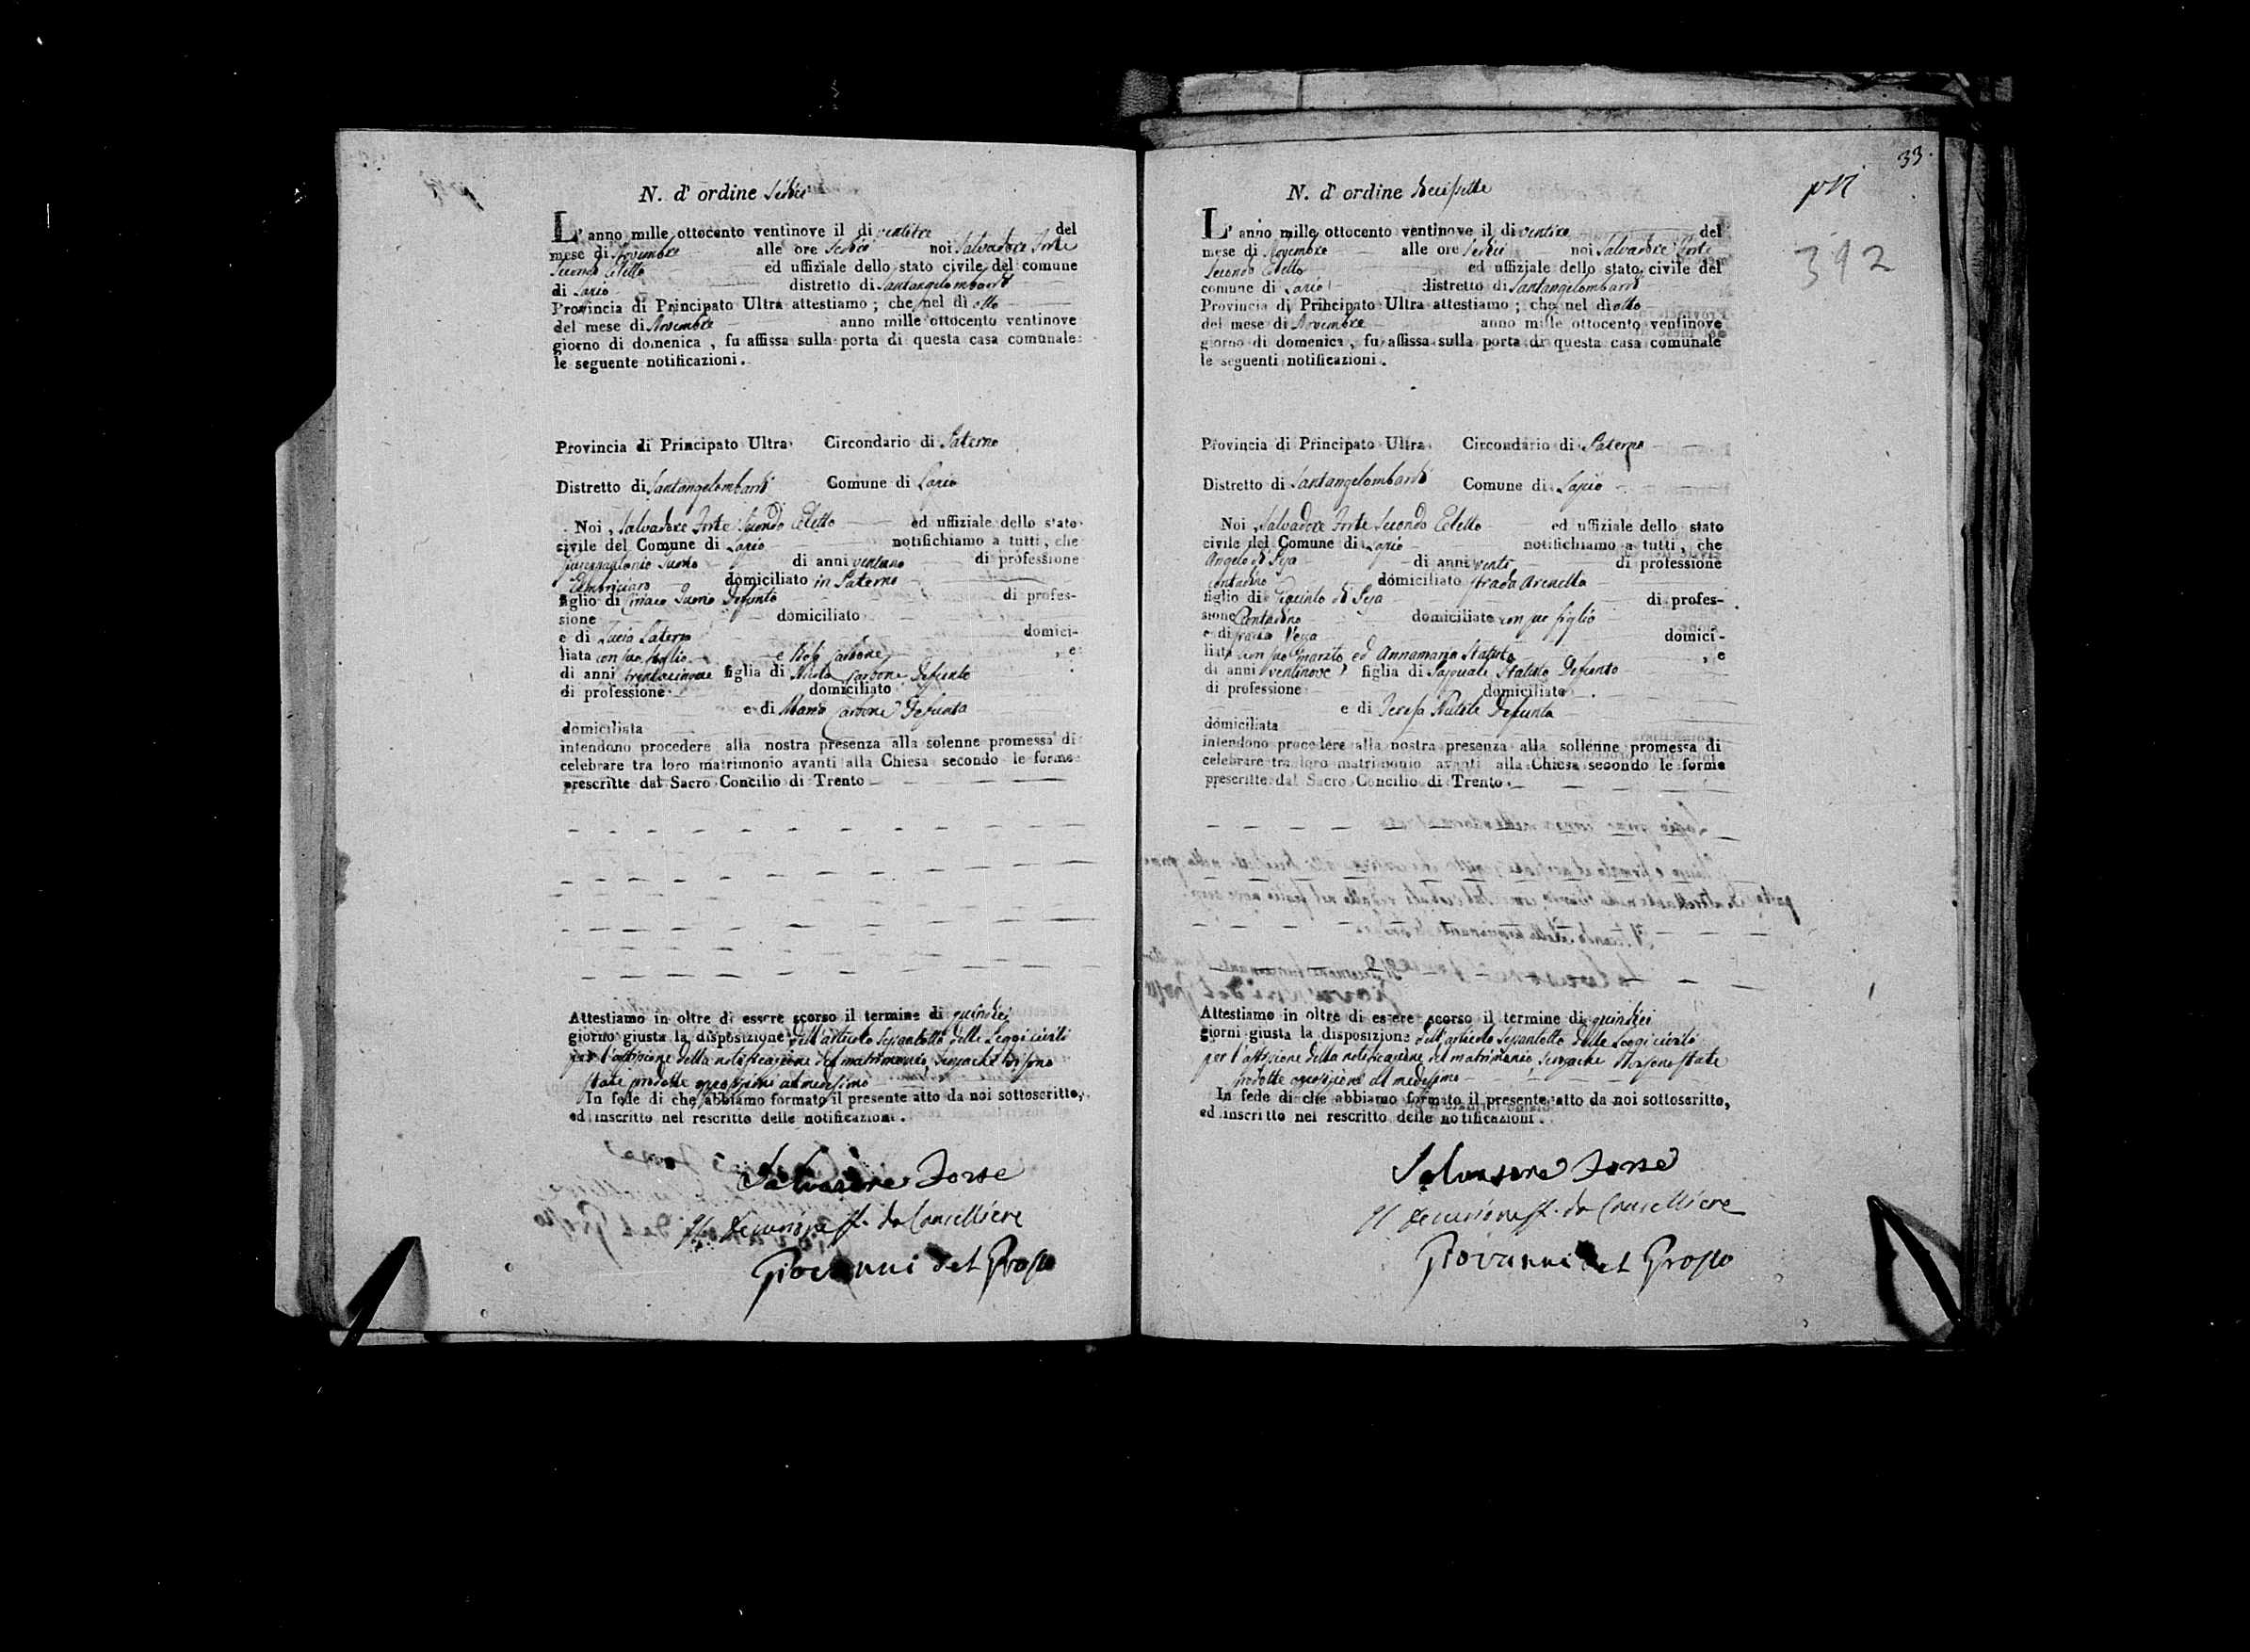 N. d' ordine Sedici
L' anno mille ottocento ventinove il di ventitre del
mese di Novembre alle ore Sedici noi Salvadore Forte
Secondo Eletto ed uffiziale dello stato civile del comune
di Lapio distretto di Santangelombardi
Provincia di Principato Ultra attestiamo ; che nel dì otto
del mese di Novembre anno mille ottocento ventinove
giorno di domenica , fu affissa sulla porta di questa casa comunale
le seguente notificazioni .
Provincia di Principato Ultra Circondario di Paterno
Distretto di Santangelombardi Comune di Lapio
Noi , Salvadore Forte Secondo Eletto ed uffiziale dello stato
civile del Comune di Lapio notifichiamo a tutti , che
di anni ventuno di professione
domiciliato in Paterno
figlio di Ciriaco defunto di profes-
sione domiciliato
e di Lucia domici-
liata con suo figlio e Carbone , e
di anni trentacinque figlia di Nicola Carbone Defunto
di professione domiciliato
e di Maria Carbone Defunta
domiciliata
intendono procedere alla nostra presenza alla solenne promessa di
celebrare tra loro matrimonio avanti alla Chiesa secondo le forme
prescritte dal Sacro Concilio di Trento
Attestiamo in oltre di essere scorso il termine di quindici
giorno giusta la disposizione dell'articolo Sessantotto delle Leggi civili
per l'affissione della notificazione del matrimonio, senzache vi sono
state prodotte opposizioni al medesimo
In fede di che abbiamo formato il presente atto da noi sottoscritto,
ed inscritto nel rescritto delle notificazioni .
Salvadore Forte
Il Decurione ff. da Cancelliere
Giovanni del Grosso
33.
N. d' ordine Deciſsette
392
L' anno mille ottocento ventinove il di ventitre del
mese di Novembre alle ore Sedici noi Salvadore Forte
Secondo Eletto ed uffiziale dello stato civile del
comune di Lapio distretto di Santangelombardi
Provincia di Principato Ultra attestiamo ; che nel dì otto
del mese di Novembre anno mille ottocento ventinove
giorno di domenica , fu affissa sulla porta di questa casa comunale
le seguenti notificazioni .
Provincia di Principato Ultra Circondario di Paterno
Distretto di Santangelombardi Comune di Lapio
Noi , Salvadore Forte Secondo Eletto ed uffiziale dello stato
civile del Comune di Lapio notifichiamo a tutti , che
Angelo di di anni venti di professione
contadino domiciliato strada Arenella
figlio di Giacinto di di profes-
sione Contadino domiciliato con suo figlio
e di domici-
liata con suo marito, ed Annamaria Statuto , e
di anni ventinove figlia di Pasquale Statuto Defunto
di professione domiciliato
e di Teresa Defunta
domiciliata
intendono procedere alla nostra presenza alla sollenne promessa di
celebrare tra loro matrimonio avanti alla Chiesa secondo le forme
prescritte dal Sacro Concilio di Trento .
Attestiamo in oltre di essere scorso il termine di quindici
giorni giusta la disposizione dell'articolo Sessantotto delle Leggi civili
per l'affissione della notificazione del matrimonio, senzache state
prodotte opposizione al medesimo
In fede di che abbiamo formato il presente atto da noi sottoscritto,
ed inscritto nel rescritto delle notificazioni .
Salvadore Forte
Il Decurione ff. da Cancelliere
Giovanni del Grosso